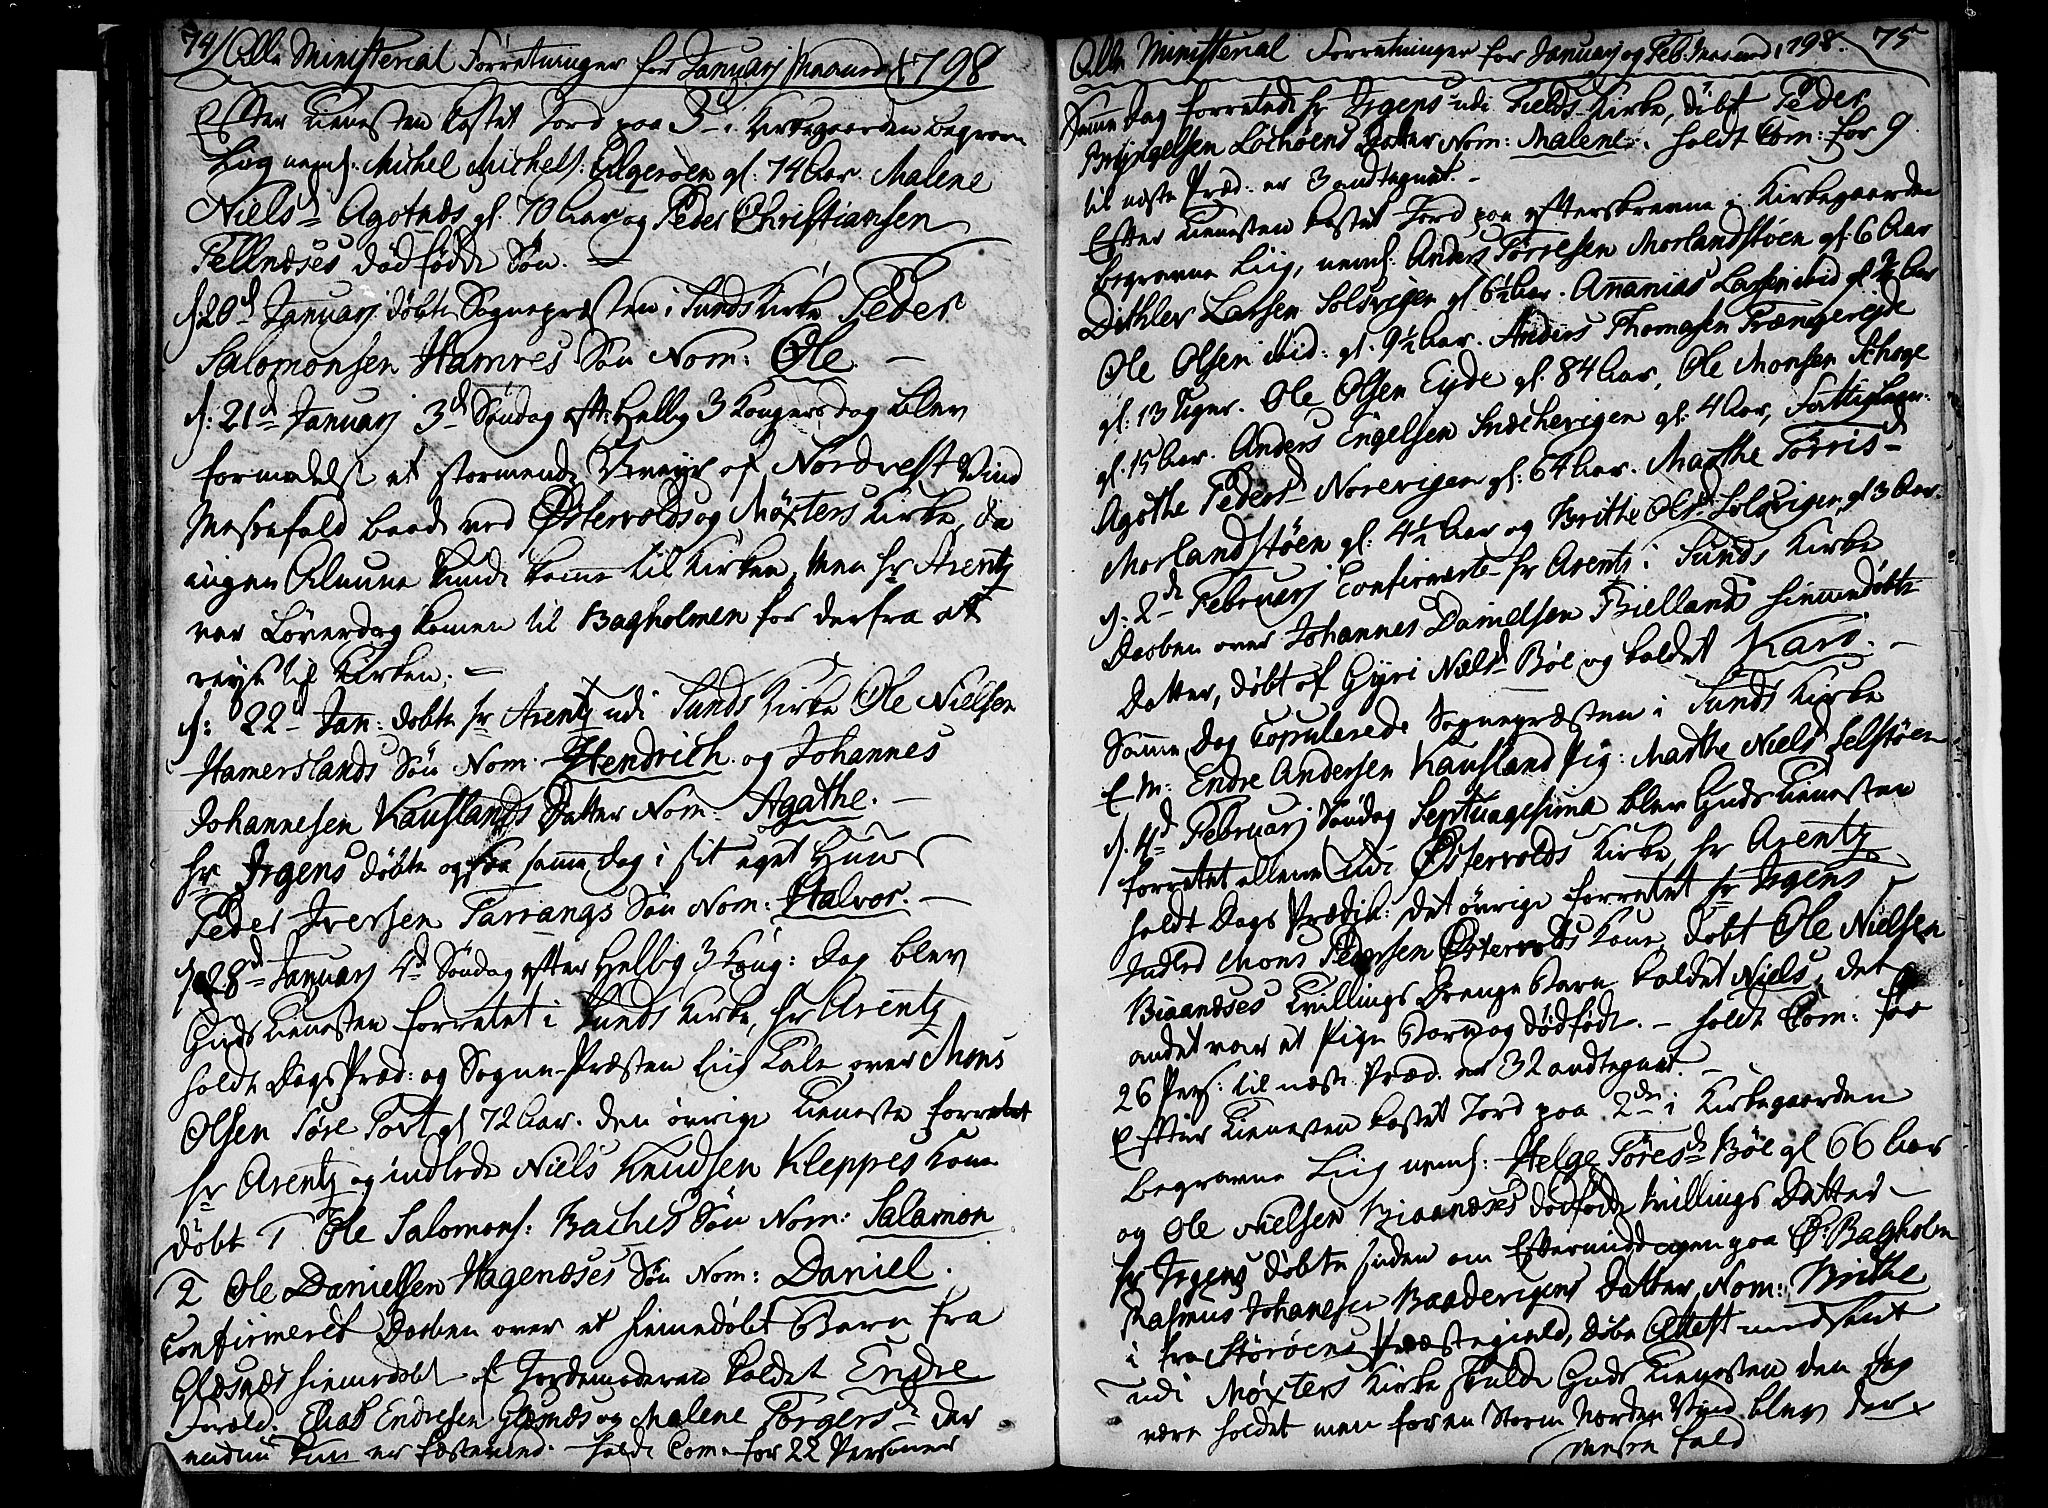 74 Alle Ministerial Forretninger for Januarj Maaned 1798
Efter Tienesten kastet Jord paa 3 i Kirkegaarden begravne
Liig neml. Michel Michels. Algeröen gl. 74 Aar Malene
Nielsd Agotnæs gl. 70 Aar og Peder Christiansen
Tellnæses dødfødde Søn.
d. 20d Januarj döbte Sognepræsten i Sunds Kirke Peder
Salomonsen Hamres Søn Nom: Ole.
d: 21d Januarj 3d Søndag eft. Hellig 3 Kongers dag blev
formedelst et stormende Veyr af Nordvest Vind
Messefald baade ved Østervolds og Møxters Kirke, da
ingen Almue kunde komme til Kirken, men hr Arentz
var Løverdag kommen til Bagholmen for derfra at
reyse til Kirken.
d: 22d Jan: döbte hr Arentz udi Sunds Kirke Ole Nielsen
Hamerslands Søn Nom. Hendrich og Johannes
Johannesen Kauslands Datter Nom. Agathe.
hr Irgens döbte ogsaa samme dag i sit eget Huus
Peder Iversen Tarrangs Søn Nom: Halvor.
d. 28d Januarj 4d Søndag efter Hellig 3 Kong: dag blev
Guds Tienesten forrettet i Sunds Kirke, hr Arentz
holdt Dags Præd: og Sogne-Præsten Liig Tale over Mons
Olsen Søre Tøft gl 72 Aar. den övrige Tieneste forrettet
hr Arentz og indledde Niels Knudsen Kleppes Kone
döbt 1 Ole Salomons: Baches Søn Nom: Salamon
2 Ole Danielsen Hagenæses Søn Nom: Daniel.
Confirmeret Daaben over et hiemedöbt Barn fra
Glæsnæs hiemedöbt af Jordemoderen kaldet Endre
Foræld: Elias Endresen Glæsnæs og Malene Torgersd der
endnu kun er fæstemend. holdt Com. for 22 Personer
Alle Ministerial Forretninger for Januarj og Feb. Maaned 1798. 75
Samme dag forrettede hr Irgens udi Fields Kirke, döbt Peder
Bryngelsen Lochöens Datter Nom: Malene. holdt Com: for 9
til næste Præd: er 3 antegnet.
Efter Tienesten kastet Jord paa efterskrevne i Kirkegaarden
begravne Liig, neml. Anders Törresen Morlandstöen gl. 6 Aar
Dithlev Larsen Solsvigen gl 6½ Aar. Ananias Larsen ibid gl Aar
Ole Olsen ibid: gl. 9½ Aar. Anders Thomasen Trængereyde
gl. 13 Uger. Ole Olsen Eyde gl. 84 Aar, Ole Monsen Schoge
gl. 15 Aar. Anders Engelsen Snechevigen gl. 4 Aar, Fattiglem:
Agothe Pedersd Norevigen gl: 64 Aar. Marthe Törrisd
Morlandstöen gl: 4½ Aar og Brithe Olsd Solsvigen gl 3 Aar.
d: 2d Februarj Confirmerte hr Arentz i Sunds Kirke
Daaben over Johannes Danielsen Biellands hiemedöbte
Datter, döbt af Gyri Nielsd Böe og kaldet Kari.
Samme dag Copulerede Sognepræsten i Sunds Kirke
E M: Endre Andersen Kausland Pig: Marthe Nielsd Selstöen
d. 4d Februarj Söndag Septuagesima blev Guds Tienesten
forrettet allene udi Østervolds Kirke, hr Arentz
holdt Dags Prædik: det övrige forrettet hr Irgens
Indled Mons Pedersen Østervolds Kone, döbt Ole Nielsen
Biaanæses Tvillings Drenge Barn kaldet Niels, det
andet var et Pige Barn og dödfödt. holdt Com: for
26 Pers: til næste Præd. er 32 antegnet.
Efter Tienesten kastet Jord paa 2de i Kirkegaarden
begravne Liig neml: Helge Töresd Böe gl 66 Aar
og Ole Nielsen Biaanæses dödfödde tvillings Datter
hr Irgens döbte siden om Eftermiddagen paa Ø: Bagholm
Rasmus Johanesen Baadevigens Datter, Nom: Brithe
i fra Störöens Præstegield, döbe Attest medsent
udi Møxters Kirke skulde Guds Tienesten den dag
være holdet men for en Storm Norden Vind blev der
messe fald